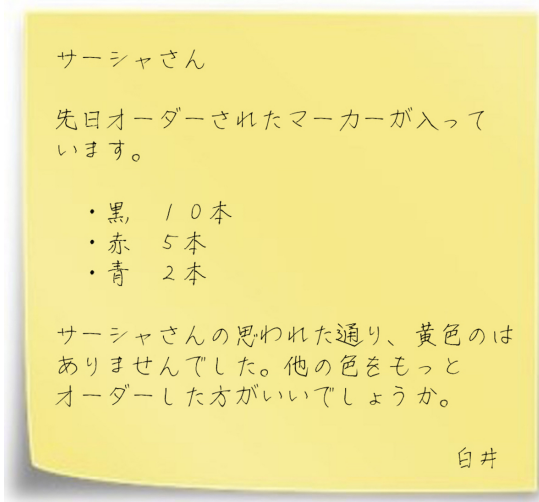 サーシャさん
先日オーダーされたマーカーが入って
います。
・黒　10本
・赤　5本
・青　2本
サーシャさんの思われた通り、黄色のは
ありませんでした。他の色をもっと
オーダーした方がいいでしょうか。
白井